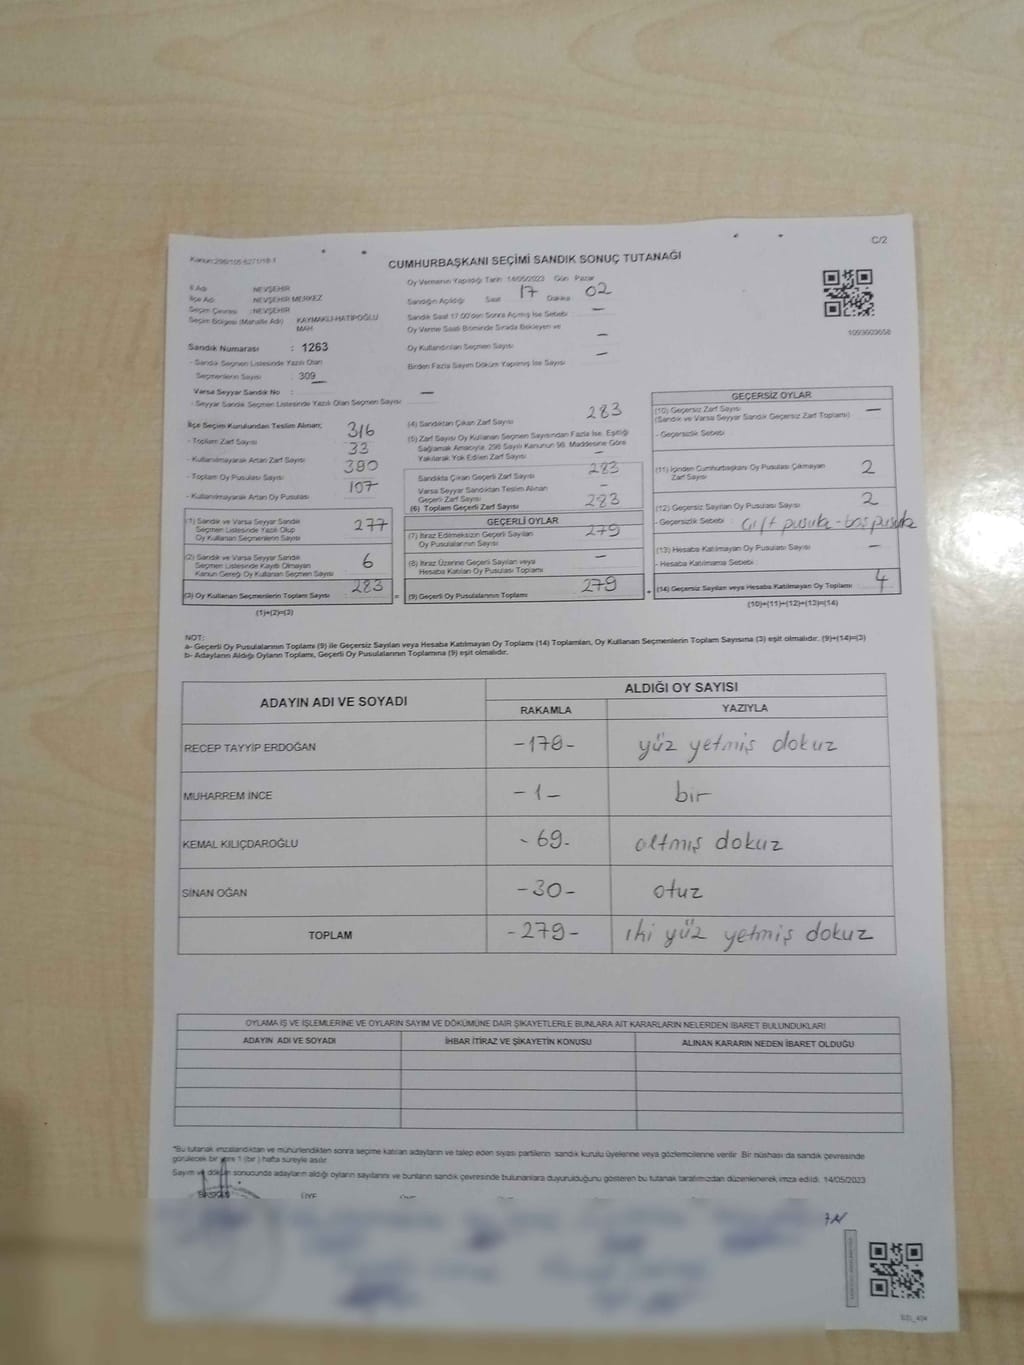 C/2
Kanun:298/105-6271/18-1
CUMHURBAŞKANI SEÇİMİ SANDIK SONUÇ TUTANAĞI
İl Adı : NEVŞEHİR
İlçe Adı : NEVŞEHİR MERKEZ
Seçim Çevresi : NEVŞEHİR
Seçim Bölgesi (Mahalle Adı) : KAYMAKLI-HATİPOĞLU
MAH
Sandık Numarası : 1263
- Sandık Seçmen Listesinde Yazılı Olan
Seçmenlerin Sayısı : 309
Varsa Seyyar Sandık No : —
- Seyyar Sandık Seçmen Listesinde Yazılı Olan Seçmen Sayısı —
Oy Vermenin Yapıldığı Tarih 14/05/2023 Gün Pazar
Sandığın Açıldığı Saat 17 Dakika 02
Sandık Saat 17.00'den Sonra Açılmış İse Sebebi —
Oy Verme Saati Bitiminde Sırada Bekleyen ve
Oy Kullandırılan Seçmen Sayısı —
Birden Fazla Sayım Döküm Yapılmış İse Sayısı —
1093603658
İlçe Seçim Kurulundan Teslim Alınan;
- Toplam Zarf Sayısı 316
- Kullanılmayarak Artan Zarf Sayısı 33
- Toplam Oy Pusulası Sayısı 390
- Kullanılmayarak Artan Oy Pusulası 107
(1) Sandık ve Varsa Seyyar Sandık
Seçmen Listesinde Yazılı Olup
Oy Kullanan Seçmenlerin Sayısı 277
(2) Sandık ve Varsa Seyyar Sandık
Seçmen Listesinde Kayıtlı Olmayan
Kanun Gereği Oy Kullanan Seçmen Sayısı 6
(3) Oy Kullanan Seçmenlerin Toplam Sayısı 283 =
(1)+(2)=(3)
(4) Sandıktan Çıkan Zarf Sayısı 283
(5) Zarf Sayısı Oy Kullanan Seçmen Sayısından Fazla İse, Eşitliği
Sağlamak Amacıyla, 298 Sayılı Kanunun 98. Maddesine Göre
Yakılarak Yok Edilen Zarf Sayısı —
Sandıkta Çıkan Geçerli Zarf Sayısı 283
Varsa Seyyar Sandıktan Teslim Alınan
Geçerli Zarf Sayısı —
(6) Toplam Geçerli Zarf Sayısı 283
GEÇERLİ OYLAR
(7) İtiraz Edilmeksizin Geçerli Sayılan
Oy Pusulalarının Sayısı 279
(8) İtiraz Üzerine Geçerli Sayılan veya
Hesaba Katılan Oy Pusulası Toplamı —
(9) Geçerli Oy Pusulalarının Toplamı 279 +
GEÇERSİZ OYLAR
(10) Geçersiz Zarf Sayısı —
(Sandık ve Varsa Seyyar Sandık Geçersiz Zarf Toplamı)
- Geçersizlik Sebebi
(11) İçinden Cumhurbaşkanı Oy Pusulası Çıkmayan
Zarf Sayısı 2
(12) Geçersiz Sayılan Oy Pusulası Sayısı 2
- Geçersizlik Sebebi : çift pusula - boş pusula
(13) Hesaba Katılmayan Oy Pusulası Sayısı —
- Hesaba Katılmama Sebebi
(14) Geçersiz Sayılan veya Hesaba Katılmayan Oy Toplamı 4
(10)+(11)+(12)+(13)=(14)
NOT:
a- Geçerli Oy Pusulalarının Toplamı (9) ile Geçersiz Sayılan veya Hesaba Katılmayan Oy Toplamı (14) Toplamları, Oy Kullanan Seçmenlerin Toplam Sayısına (3) eşit olmalıdır. (9)+(14)=(3)
b- Adayların Aldığı Oyların Toplamı, Geçerli Oy Pusulalarının Toplamına (9) eşit olmalıdır.
ADAYIN ADI VE SOYADI
ALDIĞI OY SAYISI
RAKAMLA YAZIYLA
RECEP TAYYİP ERDOĞAN -179- yüz yetmiş dokuz
MUHARREM İNCE -1- bir
KEMAL KILIÇDAROĞLU -69- altmış dokuz
SİNAN OĞAN -30- otuz
TOPLAM -279- iki yüz yetmiş dokuz
OYLAMA İŞ VE İŞLEMLERİNE VE OYLARIN SAYIM VE DÖKÜMÜNE DAİR ŞİKAYETLERLE BUNLARA AİT KARARLARIN NELERDEN İBARET BULUNDUKLARI
ADAYIN ADI VE SOYADI İHBAR İTİRAZ VE ŞİKAYETİN KONUSU ALINAN KARARIN NEDEN İBARET OLDUĞU
*Bu tutanak imzalandıktan ve mühürlendikten sonra seçime katılan adayların ve talep eden siyasi partilerin sandık kurulu üyelerine veya gözlemcilerine verilir. Bir nüshası da sandık çevresinde
görülecek bir yere 1 (bir ) hafta süreyle asılır.
Sayım ve döküm sonucunda adayların aldığı oyların sayılarını ve bunların sandık çevresinde bulunanlara duyurulduğunu gösteren bu tutanak tarafımızdan düzenlenerek imza edildi. 14/05/2023
BAŞKAN ÜYE ÜYE